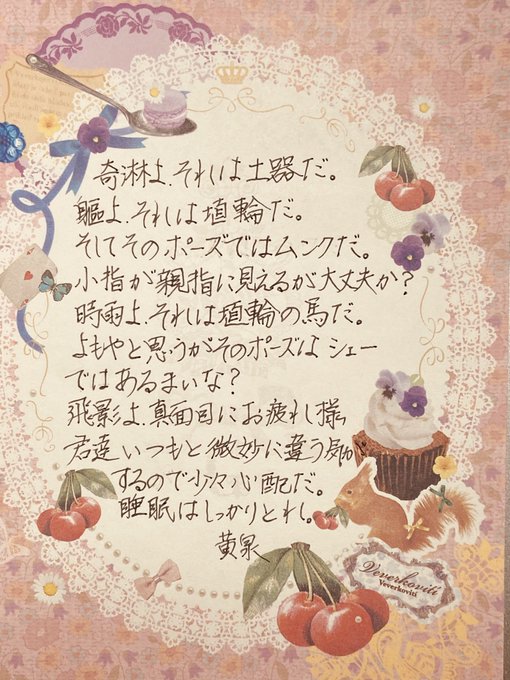 奇淋よ、それは土器だ。
軀よ、それは埴輪だ。
そしてそのポーズではムンクだ。
小指が親指に見えるが大丈夫か?
時雨よ、それは埴輪の馬だ。
よもやと思うがそのポーズは シェー
ではあるまいな?
飛影よ、真面目にお疲れ様。
君達いつもと微妙に違う気が
するので少々心配だ。
睡眠はしっかりとれ。
黄泉
Veverkoviti
Veverkoviti